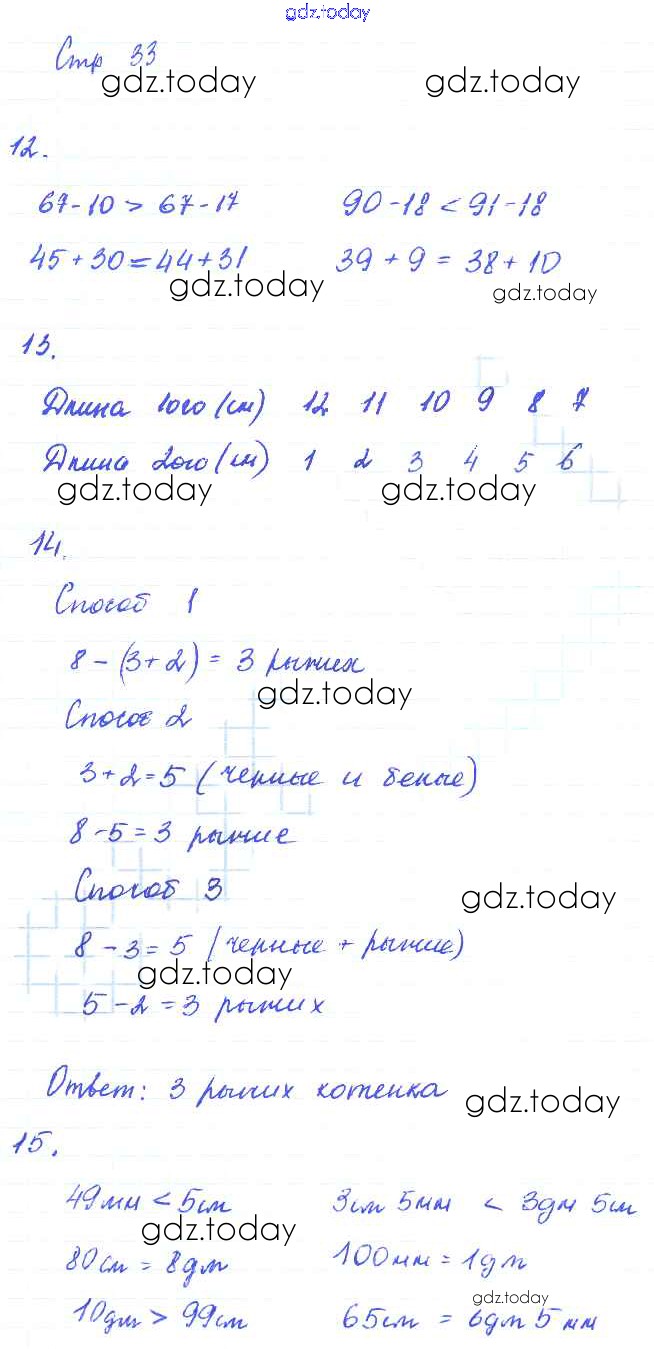 gdz.today
Стр 33
gdz.today gdz.today
12.
67-10 > 67-17 90-18 < 91-18
45+30=44+31 39+9=38+10
gdz.today gdz.today
13.
Длина 1ого (см) 12 11 10 9 8 7
Длина 2ого (см) 1 2 3 4 5 6
gdz.today gdz.today
14.
Способ 1
8-(3+2)=3 рыжих
gdz.today
Способ 2
3+2=5 (черные и белые)
8-5=3 рыжие
Способ 3
gdz.today
8-3=5 (черные + рыжие)
gdz.today
5-2=3 рыжих
Ответ: 3 рыжих котенка
gdz.today
15.
49мм < 5см 3см 5мм < 3дм 5см
gdz.today
80см = 8дм 100мм = 1дм
gdz.today
10дм > 99см 65см = 6дм 5мм